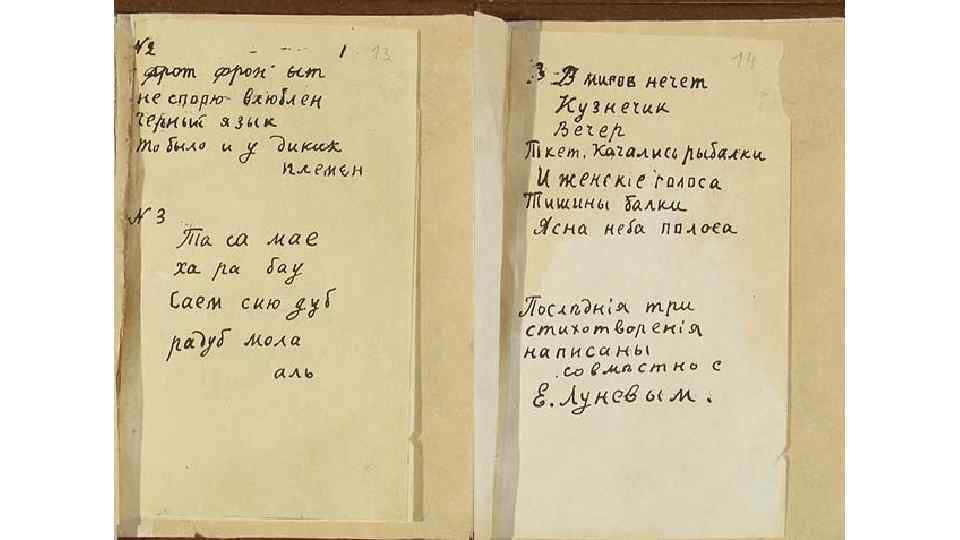 № 2
13
фрот фрон ыт
не спорю влюблен
черный язык
то было и у диких
племен
№ 3
Та са мае
ха ра бау
Саем сию дуб
радуб мола
аль
14
В мигов нечет
Кузнечик
Вечер
Ткет. Качались рыбалки
И женскіе голоса
Тишины балки
Ясна неба полоса
Послѣднія три
стихотворенія
написаны
совмѣстно с
Е. Луневым.